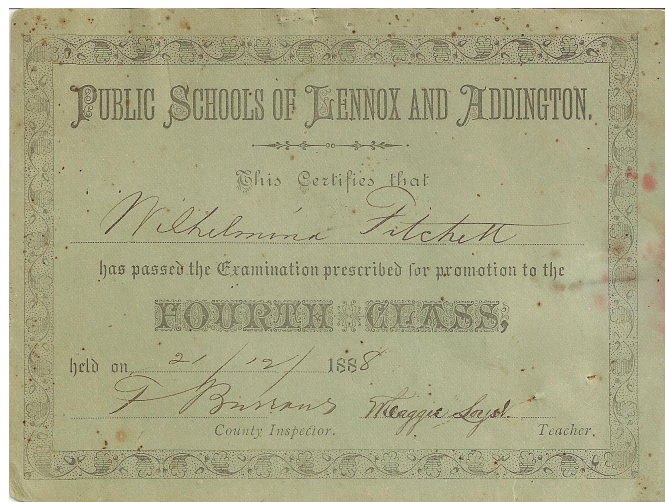 PUBLIC SCHOOLS OF LENNOX AND ADDINGTON.
This Certifies that
Wilhelmina Fitchett
has passed the Examination prescribed for promotion to the
FOURTH CLASS,
held on 21/12/1888
F Burrows Maggie
County Inspector. Teacher.